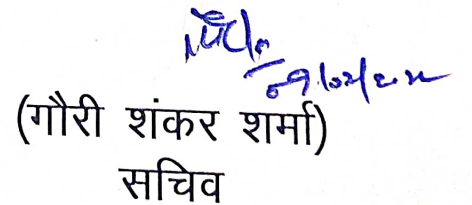 (गौरी शंकर शर्मा)
सचिव